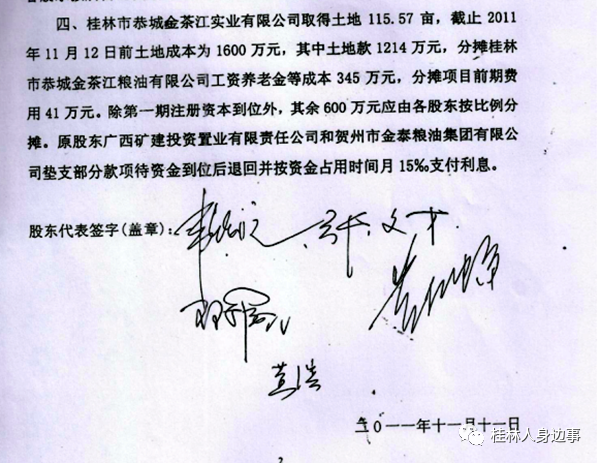 四、桂林市恭城金茶江实业有限公司取得土地 115.57 亩，截止 2011
年 11 月 12 日前土地成本为 1600 万元，其中土地款 1214 万元，分摊桂林
市恭城金茶江粮油有限公司工资养老金等成本 345 万元，分摊项目前期费
用 41 万元。除第一期注册资本到位外，其余 600 万元应由各股东按比例分
摊。原股东广西矿建投资置业有限责任公司和贺州市金泰粮油集团有限公
司垫支部分款项待资金到位后退回并按资金占用时间月 15‰支付利息。
股东代表签字(盖章)：
二0一一年十一月十一日
2
桂林人身边事